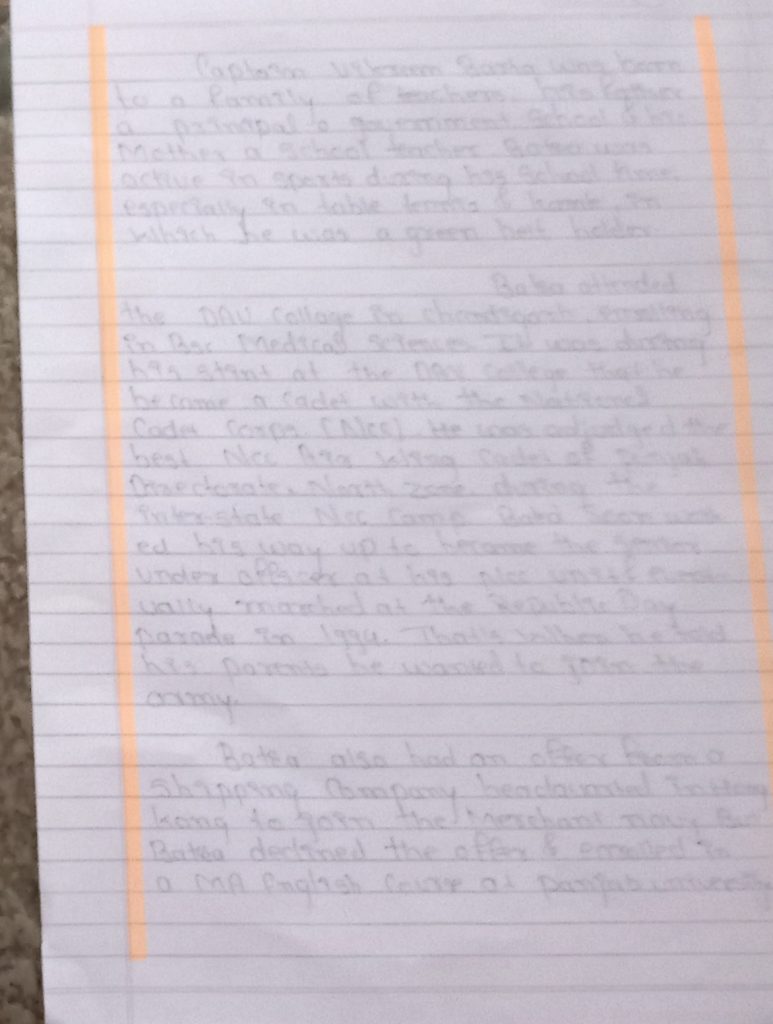 Captain Vikram Batra was born
to a Family of teachers. his father
a principal o government School & his
Mother a School teacher Batra was
active in sports during his School time
especially in table tennis & karate, in
which he was a green belt holder.
Batra attended
the DAV Collage in chandigarh, enrolling
in Bsc Medical Sciences It was during
his stint at the DAV College that he
became a Cadet with the National
Cadet Corps (Ncc). He was adjudged the
best Ncc Air Wing Cadet of Punjab
Directorate, North zone, during the
inter-state Ncc Camp. Batra Soon work
ed his way up to become the Senior
under officer at his Ncc unit & even
ually marched at the Republic Day
parade in 1994. That's When he told
his parents he wanted to join the
army.
Batra also had an offer from a
Shipping Company headquarted in Hong
kong to join the Merchant navy But
Batra declined the offer & enrolled in
a MA English Course at Panjab university